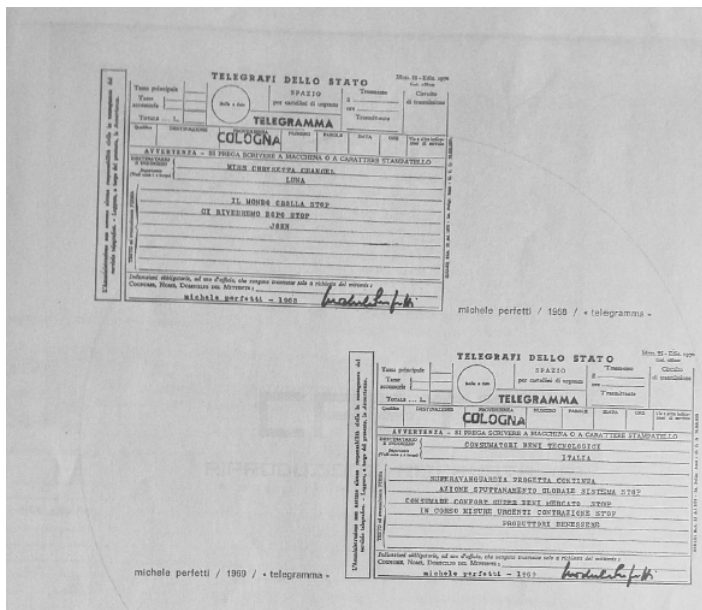 TELEGRAFI DELLO STATO
Tassa principale
Tassa accessoria
TOTALE ... L.
Bollo a data
SPAZIO
per cartellini di urgenza
Trasmesso
ore
Trasmittente
Circuito
di trasmissione
TELEGRAMMA
Qualifica DESTINAZIONE PROVENIENZA NUMERO PAROLE DATA ORE
COLOGNA
AVVERTENZA - SI PREGA SCRIVERE A MACCHINA O A CARATTERE STAMPATELLO
DESTINATARIO
E INDIRIZZO
LUNA
IL MONDO CROLLA STOP
CI RIVEDREMO DOPO STOP
JOHN
Indicazioni obbligatorie, ad uso d'ufficio, che vengono trasmesse solo a richiesta del mittente:
COGNOME, NOME, DOMICILIO DEL MITTENTE:
michele perfetti - 1968
michele perfetti / 1968 / « telegramma »
TELEGRAFI DELLO STATO
Tassa principale
Tassa accessoria
TOTALE ... L.
Bollo a data
SPAZIO
per cartellini di urgenza
Trasmesso
ore
Trasmittente
Circuito
di trasmissione
TELEGRAMMA
Qualifica DESTINAZIONE PROVENIENZA NUMERO PAROLE DATA ORE
COLOGNA
AVVERTENZA - SI PREGA SCRIVERE A MACCHINA O A CARATTERE STAMPATELLO
DESTINATARIO
E INDIRIZZO
CONSUMATORI BENI TECNOLOGICI
ITALIA
SUPERAVANGUARDIA PROGETTA CONTINUA
AZIONE SPUTTANAMENTO GLOBALE SISTEMA STOP
CONSUMARE CONFORT SUPER BENI MERCATO STOP
IN CORSO MISURE URGENTI CONTRAZIONE STOP
PRODUTTORI BENESSERE
Indicazioni obbligatorie, ad uso d'ufficio, che vengono trasmesse solo a richiesta del mittente:
COGNOME, NOME, DOMICILIO DEL MITTENTE:
michele perfetti - 1969
michele perfetti / 1969 / « telegramma »